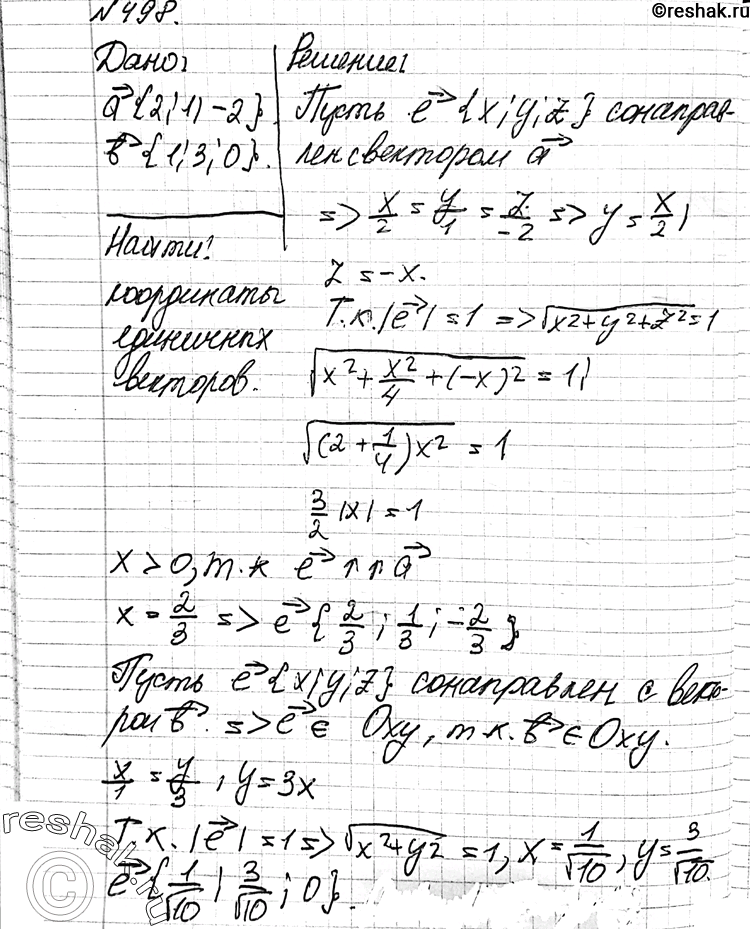 ©reshak.ru
№498.
Дано:
a⃗ {2; 1; -2}
b⃗ {1; 3; 0}.
Найти:
координаты
единичных
векторов.
Решение:
Пусть e⃗ {x; y; z} сонаправ-
лен с вектором a⃗
=> x/2 = y/1 = z/-2 => y = x/2;
z = -x.
Т.к. |e⃗| = 1 => √(x² + y² + z²) = 1
√(x² + x²/4 + (-x)²) = 1;
√((2 + 1/4)x²) = 1
3/2 |x| = 1
x > 0, т.к e⃗ ↑↑ a⃗
x = 2/3 => e⃗ {2/3; 1/3; -2/3}
Пусть e⃗ {x; y; z} сонаправлен с векто-
ром b⃗. => e⃗ ∈ Oxy, т.к. b⃗ ∈ Oxy.
x/1 = y/3; y = 3x
Т.к. |e⃗| = 1 => √(x² + y²) = 1, x = 1/√10, y = 3/√10.
e⃗ {1/√10; 3/√10; 0}.
reshak.ru
©